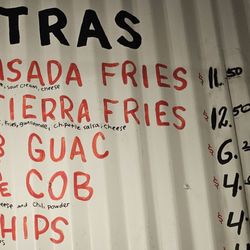 TRAS
SADA FRIES $11.50
, sour cream, cheese
TIERRA FRIES $12.50
, fries, guacamole, chipotle salsa, cheese
GUAC $6.
COB $4.
cheese and chili powder
HIPS $4